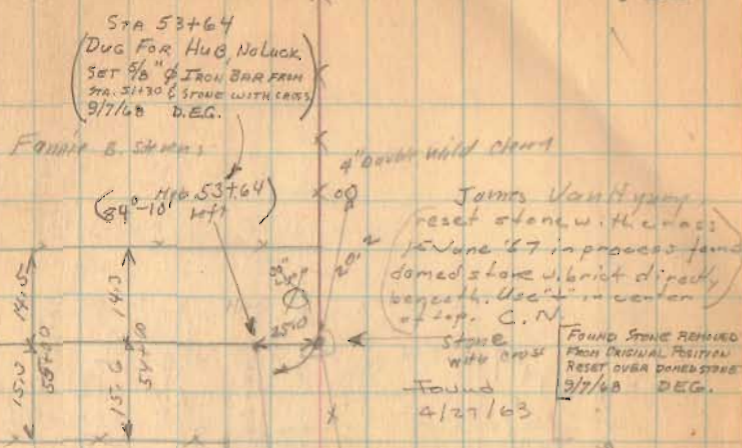 STA 53+64
(DUG FOR HUB, NO LUCK
SET 5/8" ⌀ IRON BAR FROM
STA. 51+30 & STONE WITH CROSS
9/7/68 D.E.G.)
Fannie B. Stevens
4" Double Wild Cherry
Hub 53+64
(84°-10' left)
James Van
(reset stone with cross
15 June '67 in process found
domed stone w. brick directly
beneath. Use "+" in center
of top. C.N.)
20.2
25.0
14.5
14.3
15.0
55+00
15.6
54+00
Stone
with cross
Found
4/27/63
[FOUND STONE REMOVED
FROM ORIGINAL POSITION
RESET OVER DOMED STONE
9/7/68 DEG.